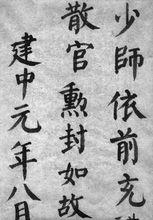 少師依前充
散官勲封如故
建中元年八月